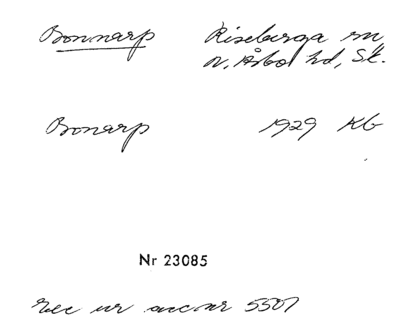 Bonnarp Riseberga sn
N. Åsbo hd, Sk.
Bonarp 1929 Kb
Nr 23085
Exc ur acc.nr 5507